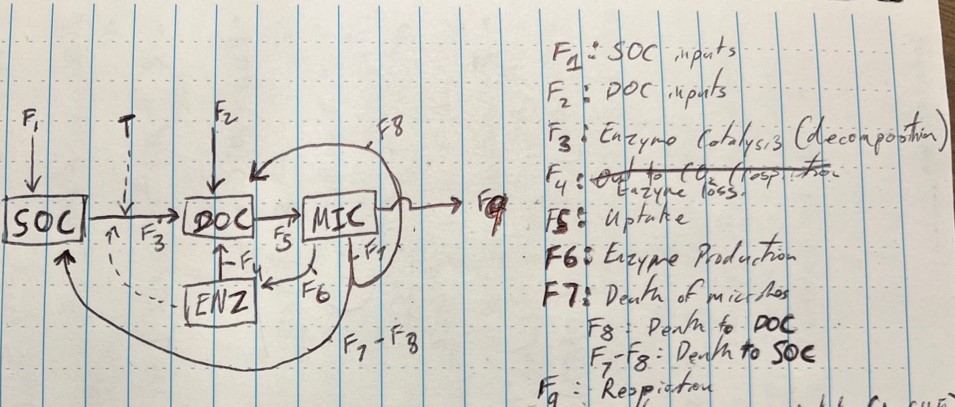 F1
T
F2
F8
SOC
F3
DOC
F5
MIC
F9
F4
F7
ENZ
F6
F7-F8
F1: SOC inputs
F2: DOC inputs
F3: Enzyme Catalysis (decomposition)
F4: Out to CO2 (respiration
Enzyme loss.
F5: Uptake
F6: Enzyme Production
F7: Death of microbes
F8: Death to DOC
F7-F8: Death to SOC
F9: Respiration